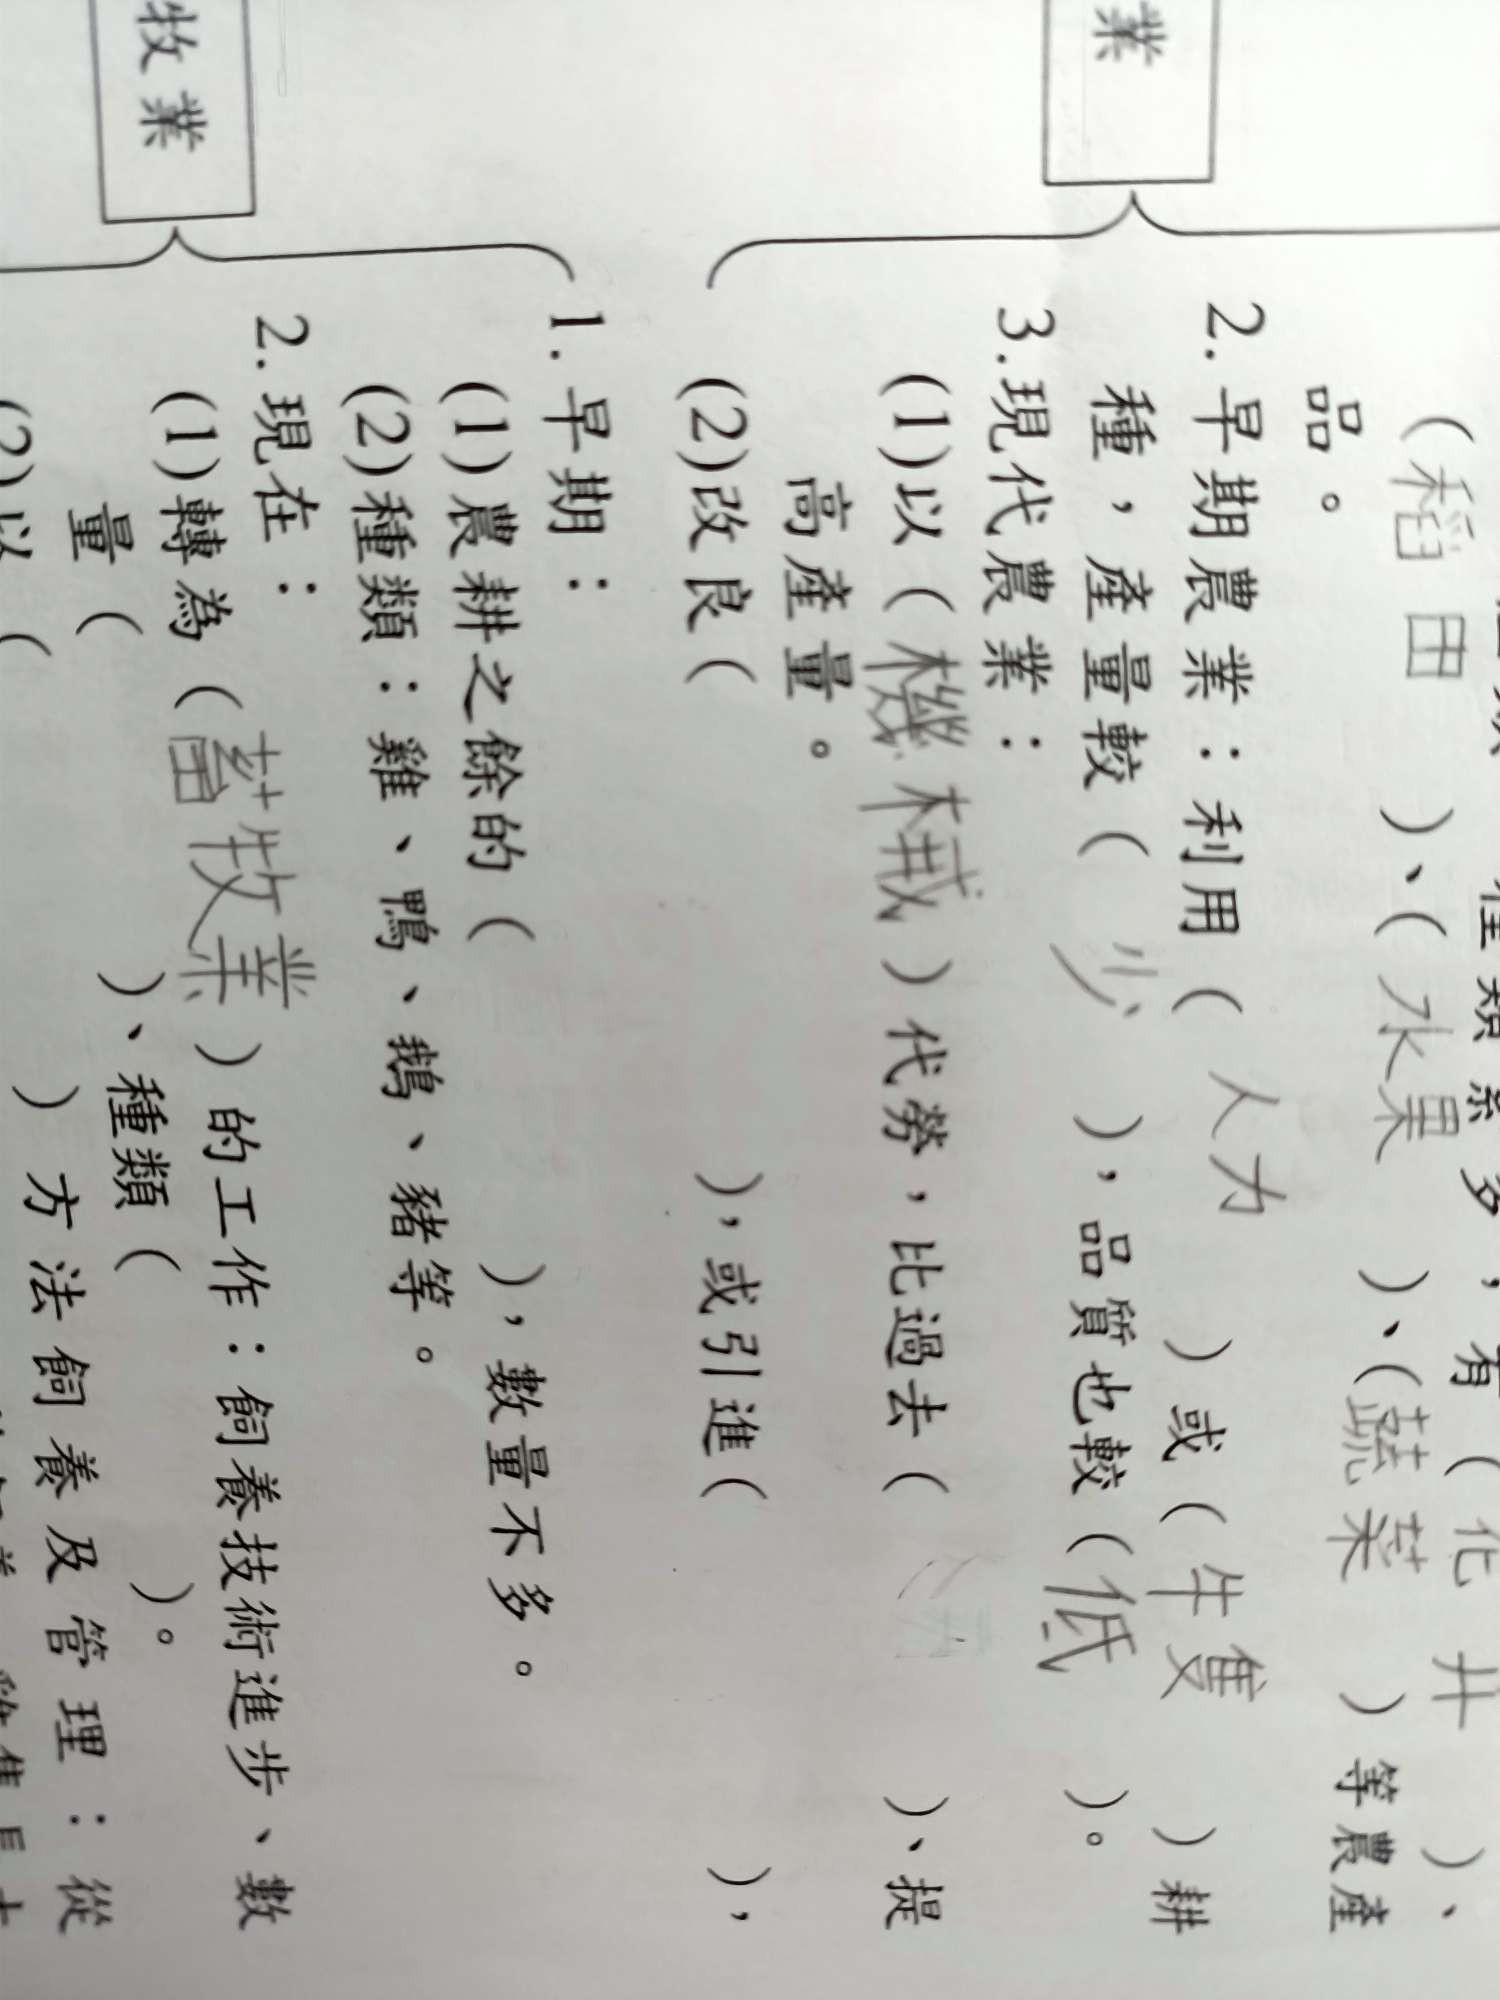 業
多，有（化 井）、
（稻田）、（水果）、（蔬菜）等農產
品。
2.早期農業：利用（人力）或（牛隻）耕
種，產量較（少），品質也較（低）。
3.現代農業：
(1)以（機械）代勞，比過去（ ）、提
高產量。
(2)改良（ ），或引進（ ），
牧業
1.早期：
(1)農耕之餘的（ ），數量不多。
(2)種類：雞、鴨、鵝、豬等。
2.現在：
(1)轉為（畜牧業）的工作：飼養技術進步、數
量（ ）、種類（ ）。
(2)以（ ）方法飼養及管理：從